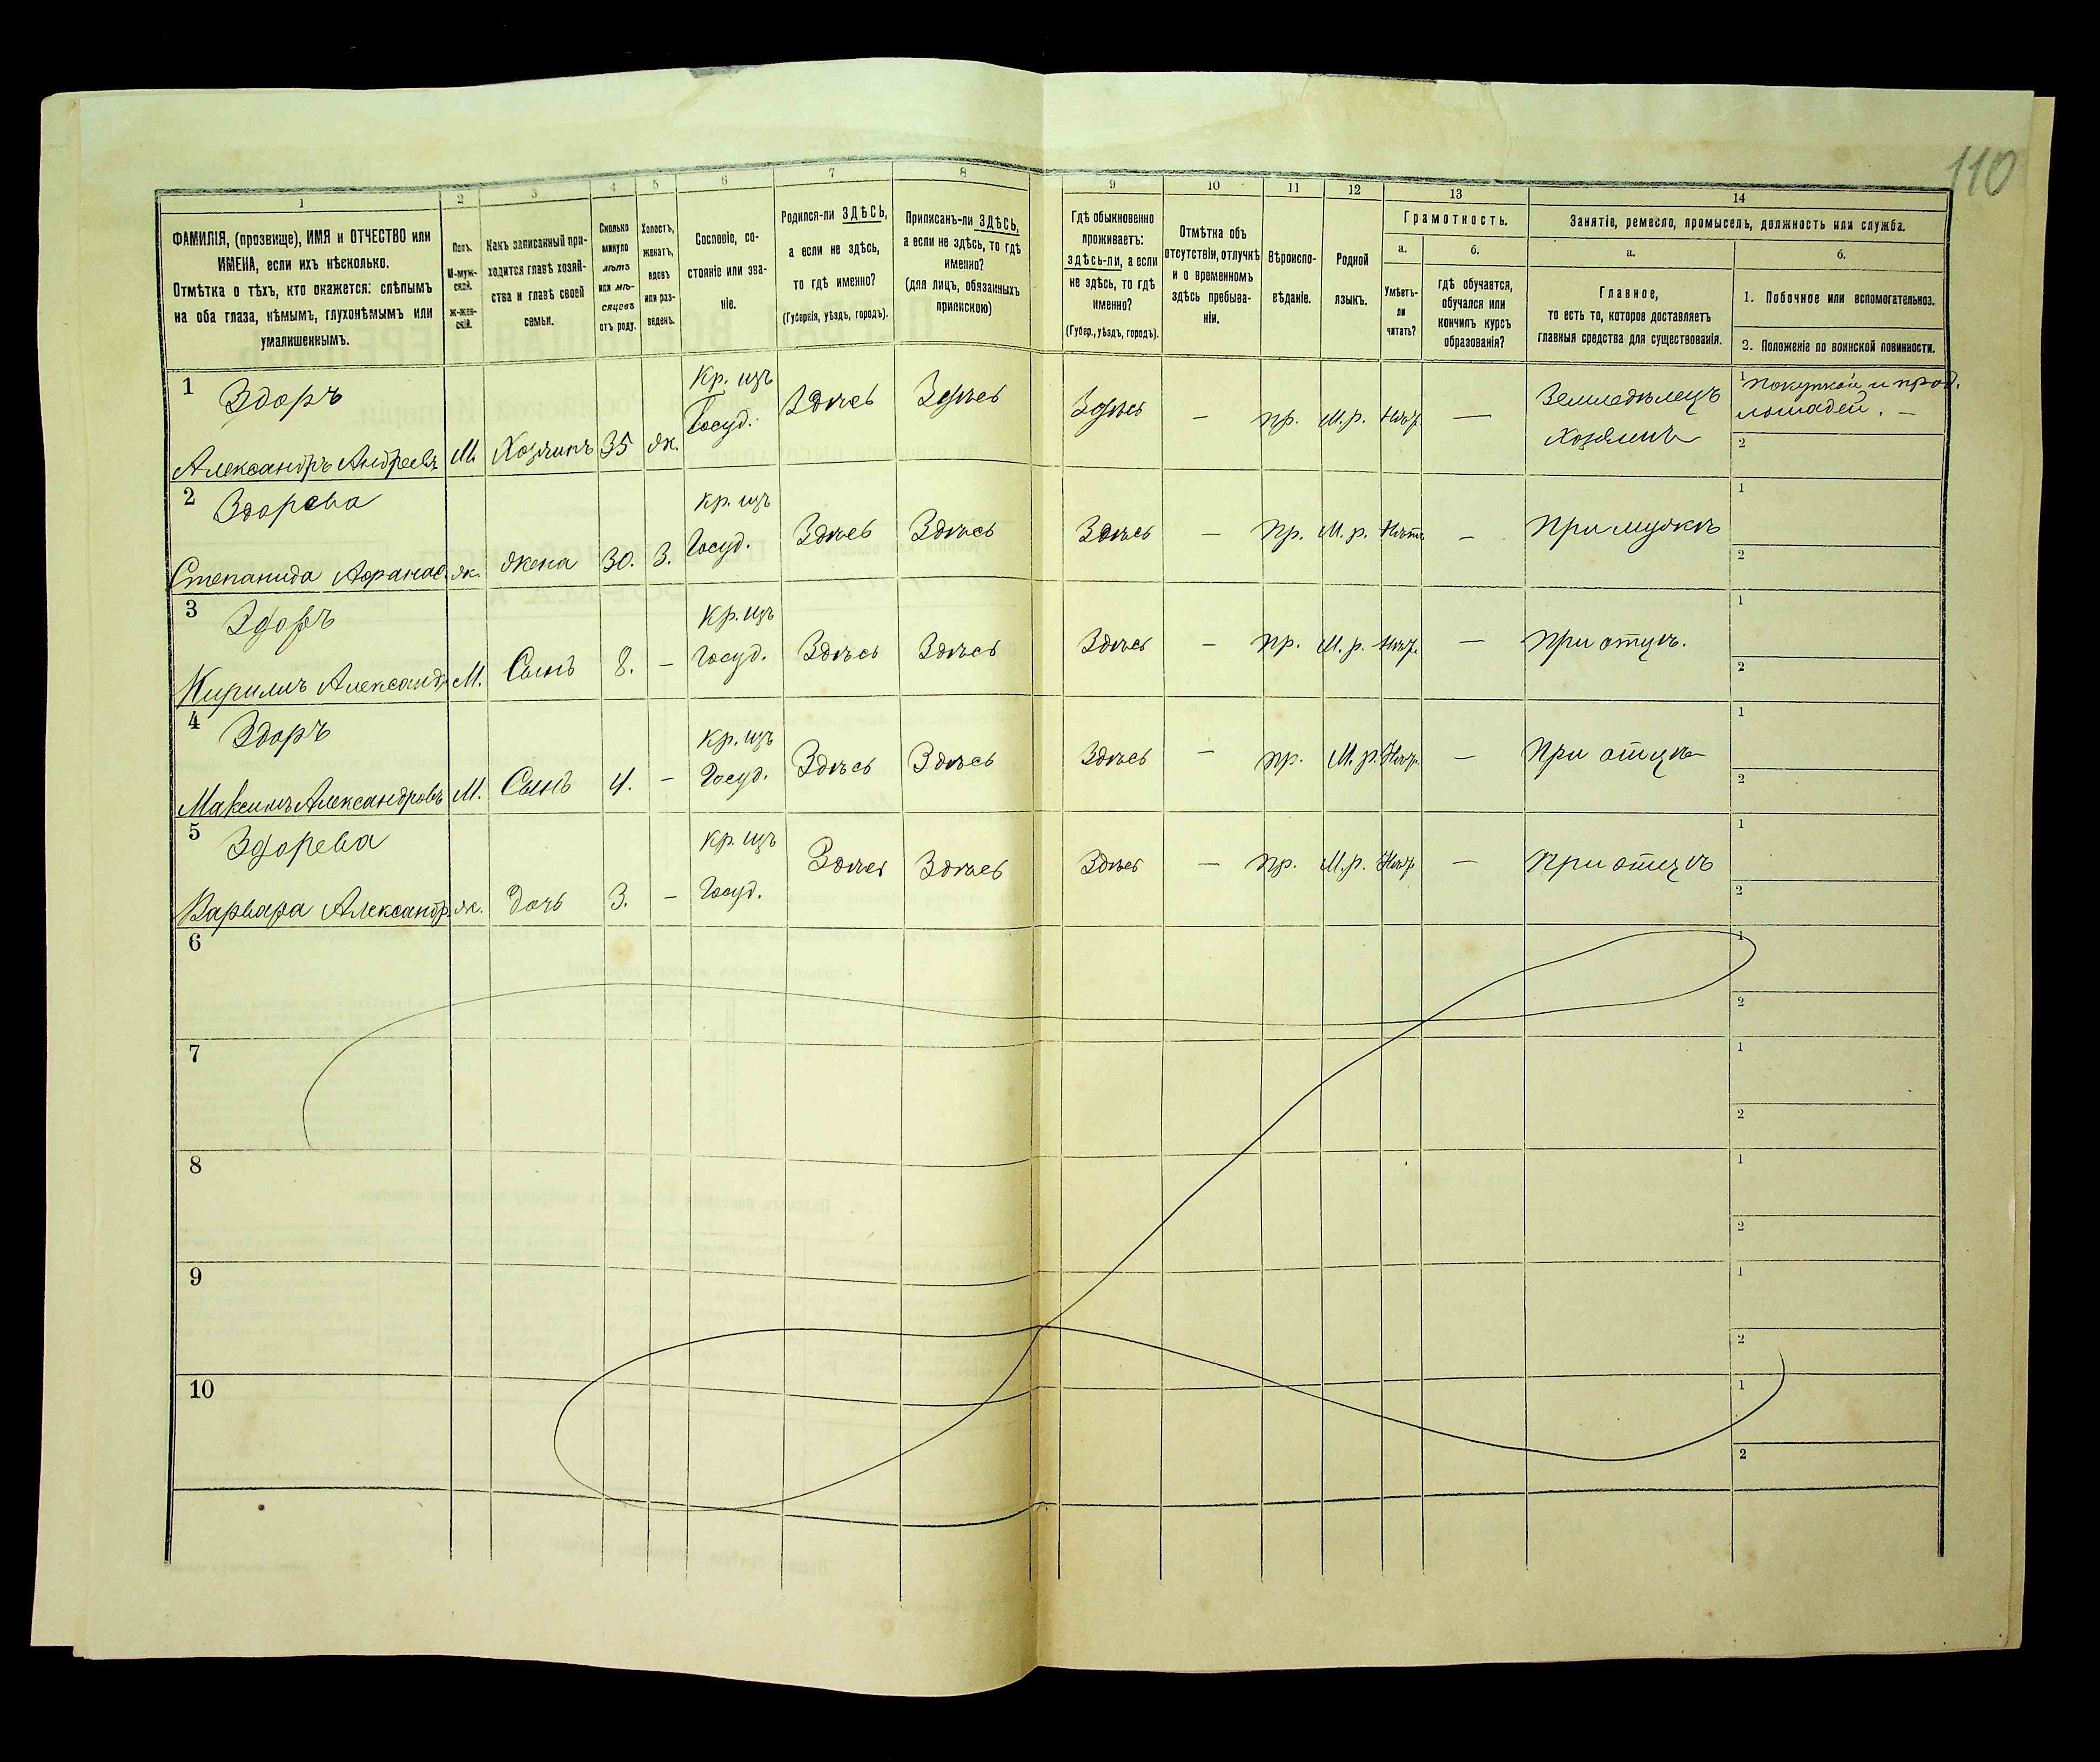 110
1 2 3 4 5 6 7 8 9 10 11 12 13 14
ФАМИЛІЯ, (прозвище), ИМЯ и ОТЧЕСТВО или
ИМЕНА, если ихъ нѣсколько.
Отмѣтка о тѣхъ, кто окажется: слѣпымъ
на оба глаза, нѣмымъ, глухонѣмымъ или
умалишеннымъ.
Полъ.
М-муж-
ской.
Ж-жен-
скій.
Какъ записанный при-
ходится главѣ хозяй-
ства и главѣ своей
семьи.
Сколько
минуло
лѣтъ
или мѣ-
сяцевъ
отъ роду.
Холостъ,
женатъ,
вдовъ
или раз-
веденъ.
Сословіе, со-
стояніе или зва-
ніе.
Родился-ли ЗДѢСЬ,
а если не здѣсь,
то гдѣ именно?
(Губернія, уѣздъ, городъ).
Приписанъ-ли ЗДѢСЬ,
а если не здѣсь, то гдѣ
именно?
(для лицъ, обязанныхъ
припискою)
Гдѣ обыкновенно
проживаетъ:
здѣсь-ли, а если
не здѣсь, то гдѣ
именно?
(Губер., уѣздъ, городъ).
Отмѣтка объ
отсутствіи, отлучкѣ
и о временномъ
здѣсь пребыва-
ніи.
Вѣроиспо-
вѣданіе.
Родной
языкъ.
Грамотность.
а.
Умѣетъ-
ли
читать?
б.
гдѣ обучается,
обучался или
кончилъ курсъ
образованія?
Занятіе, ремесло, промыселъ, должность или служба.
а.
Главное,
то есть то, которое доставляетъ
главныя средства для существованія.
б.
1. Побочное или вспомогательное.
2. Положеніе по воинской повинности.
1 Здоръ
Александръ Андреевъ М. Хозяинъ 35 ж. Кр. изъ Госуд. Здѣсь Здѣсь Здѣсь — пр. М.р. Нѣт — Земледѣлецъ
хозяинъ
1 покупкой и прод.
лошадей. —
2
2 Здорева
Степанида Афанас. ж. жена 30. З. Кр. изъ Госуд. Здѣсь Здѣсь Здѣсь — пр. М. р. Нѣтъ — При мужѣ
1
2
3 Здоръ
Кирилъ Александр. М. Сынъ 8. — Кр. изъ Госуд. Здѣсь Здѣсь Здѣсь — пр. М. р. Нѣт. — При отцѣ.
1
2
4 Здоръ
Максимъ Александровъ М. Сынъ 4. — Кр. изъ Госуд. Здѣсь Здѣсь Здѣсь — пр. М. р. Нѣт. — При отцѣ
1
2
5 Здорева
Варвара Александр. ж. дочь 3. — Кр. изъ Госуд. Здѣсь Здѣсь Здѣсь — пр. М.р. Нѣт — При отцѣ
1
2
6 1
2
7 1
2
8 1
2
9 1
2
10 1
2